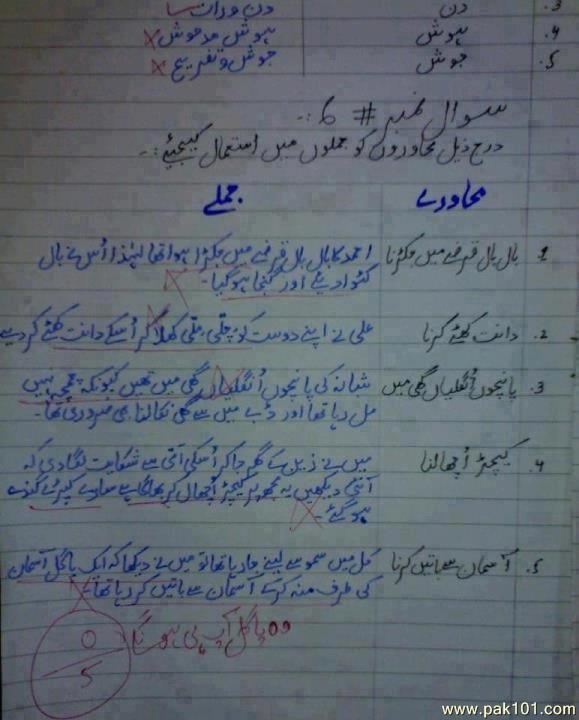 3. دن دن و رات
4. ہوش ہوش مدہوش
5. جوش جوش و تفریح
سوال نمبر # 6 :-
درج ذیل محاوروں کو جملوں میں استعمال کیجیئے :-
محاورے جملے
1. بال بال قرضے میں جکڑنا احمد کا بال بال قرضے میں جکڑا ہوا تھا لہٰذا اُس نے بال
کٹوا دیئے اور گنجا ہو گیا۔
2. دانت کھٹے کرنا علی نے اپنے دوست کو کھلا کر اُسکے دانت کھٹے کر دیے
3. پانچوں اُنگلیاں گھی میں شبانہ کی پانچوں اُنگلیاں گھی میں تھیں کیونکہ چمچی نہیں
مل رہا تھا اور ڈبے میں سے گھی نکالنا بھی ضروری تھا۔
4. کیچڑ اُچھالنا میں نے کے گھر جا کر اُسکی آنٹی سے شکایت لگا دی کہ
آنٹی دیکھیں یہ مجھ پر کیچڑ اُچھال کر بھاگا ہے سارے کپڑے گندے
ہو گئے۔
5. آسمان سے باتیں کرنا کل میں سموسے لینے جا رہا تھا تو میں نے دیکھا کہ ایک پاگل آسمان
کی طرف منہ کر کے آسمان سے باتیں کر رہا تھا۔
وہ پاگل آپ ہی ہونگا
0
5
www.pak101.com